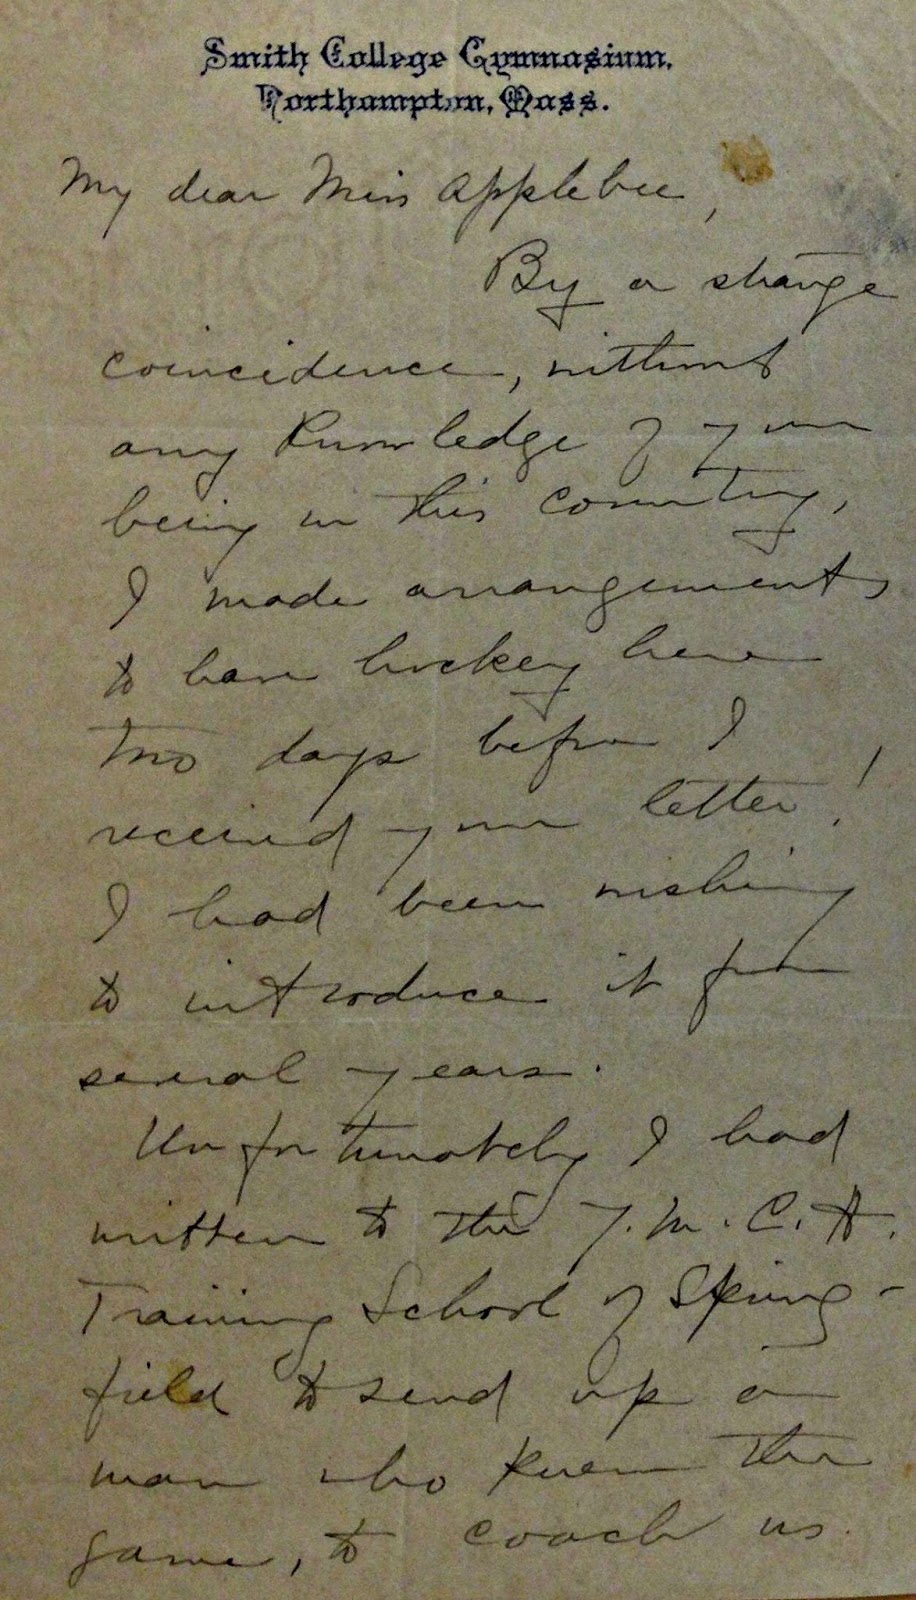 Smith College Gymnasium,
Northampton, Mass.
My dear Miss Applebee,
By a strange
coincidence, without
any knowledge of your
being in this country,
I made arrangements
to have hockey here
two days before I
received your letter!
I had been wishing
to introduce it for
several years.
Unfortunately I had
written to the Y.M.C.A.
Training School of Spring-
field to send up a
man who knew the
game, to coach us.